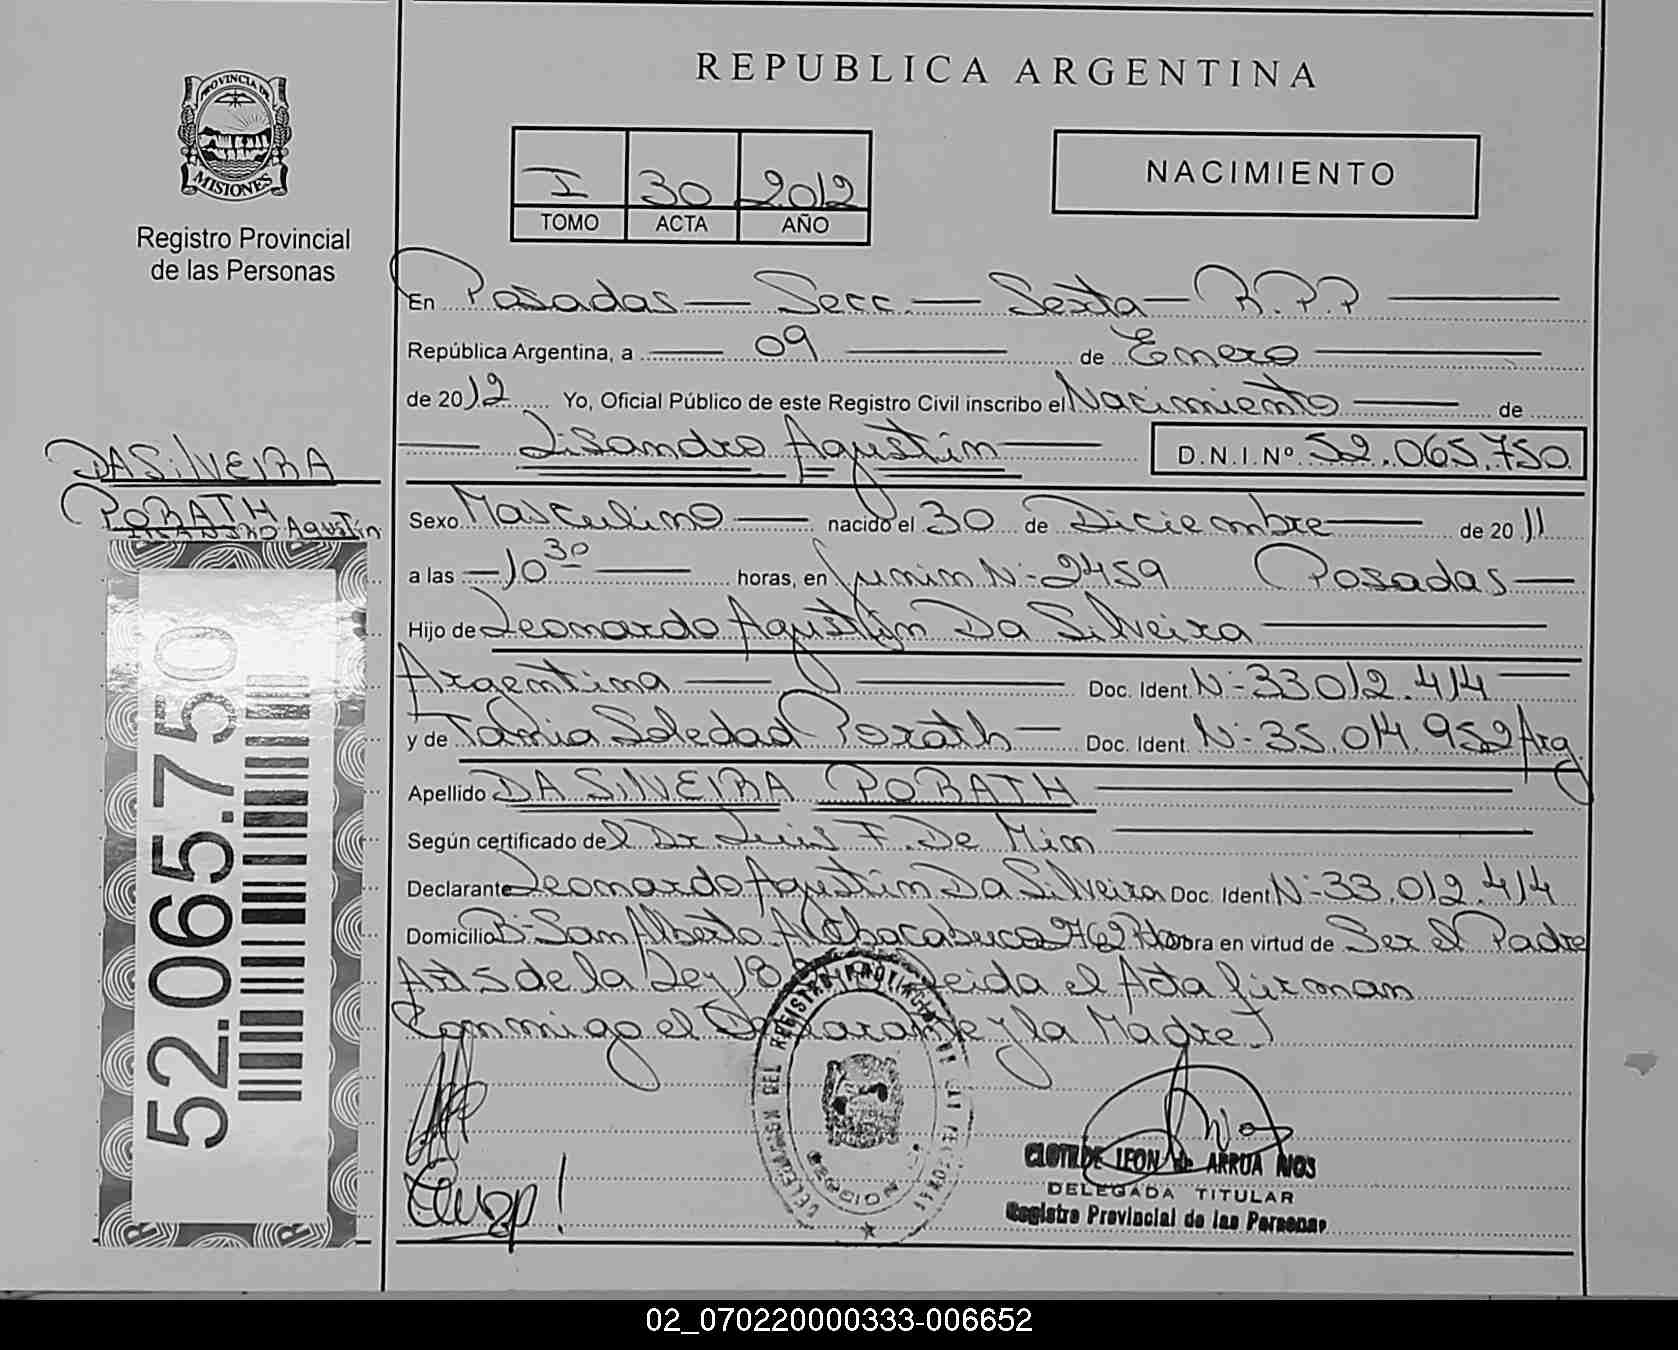 PROVINCIA DE
MISIONES
Registro Provincial
de las Personas
REPUBLICA ARGENTINA
I 30 2012
TOMO ACTA AÑO
NACIMIENTO
En Posadas Secc. Sexta R.P.P
República Argentina, a 09 de Enero
de 2012 Yo, Oficial Público de este Registro Civil inscribo el Nacimiento de
Lisandro Agustín D.N.I.Nº 52.065.750
DA SiLVEIRA
PORATH
Agustín
Sexo Masculino nacido el 30 de Diciembre de 2011
a las 10 30 horas, en Junin Nº 2459 Posadas
Hijo de Leonardo Agustín Da Silveira
Argentina Doc. Ident. Nº 33.012.414
y de Tamia Soledad Porath Doc. Ident. Nº 35.014.952 Arg
Apellido DA SiLVEIRA PORATH
Según certificado del Dr Luis F. De Mim
Declarante Leonardo Agustín Da Silveira Doc. Ident Nº 33.012.414
Domicilio Bº San Alberto Chacabuco obra en virtud de Ser el Padre
Art 5 de la Ley 18 Leida el Acta firman
Conmigo el Declarante y la Madre
52.065.750
DELEGACION DEL REGISTRO PROVINCIAL DE LAS PERSONAS
CLOTILDE LEON de ARRUA RIOS
DELEGADA TITULAR
Registro Provincial de las Personas
02_070220000333-006652